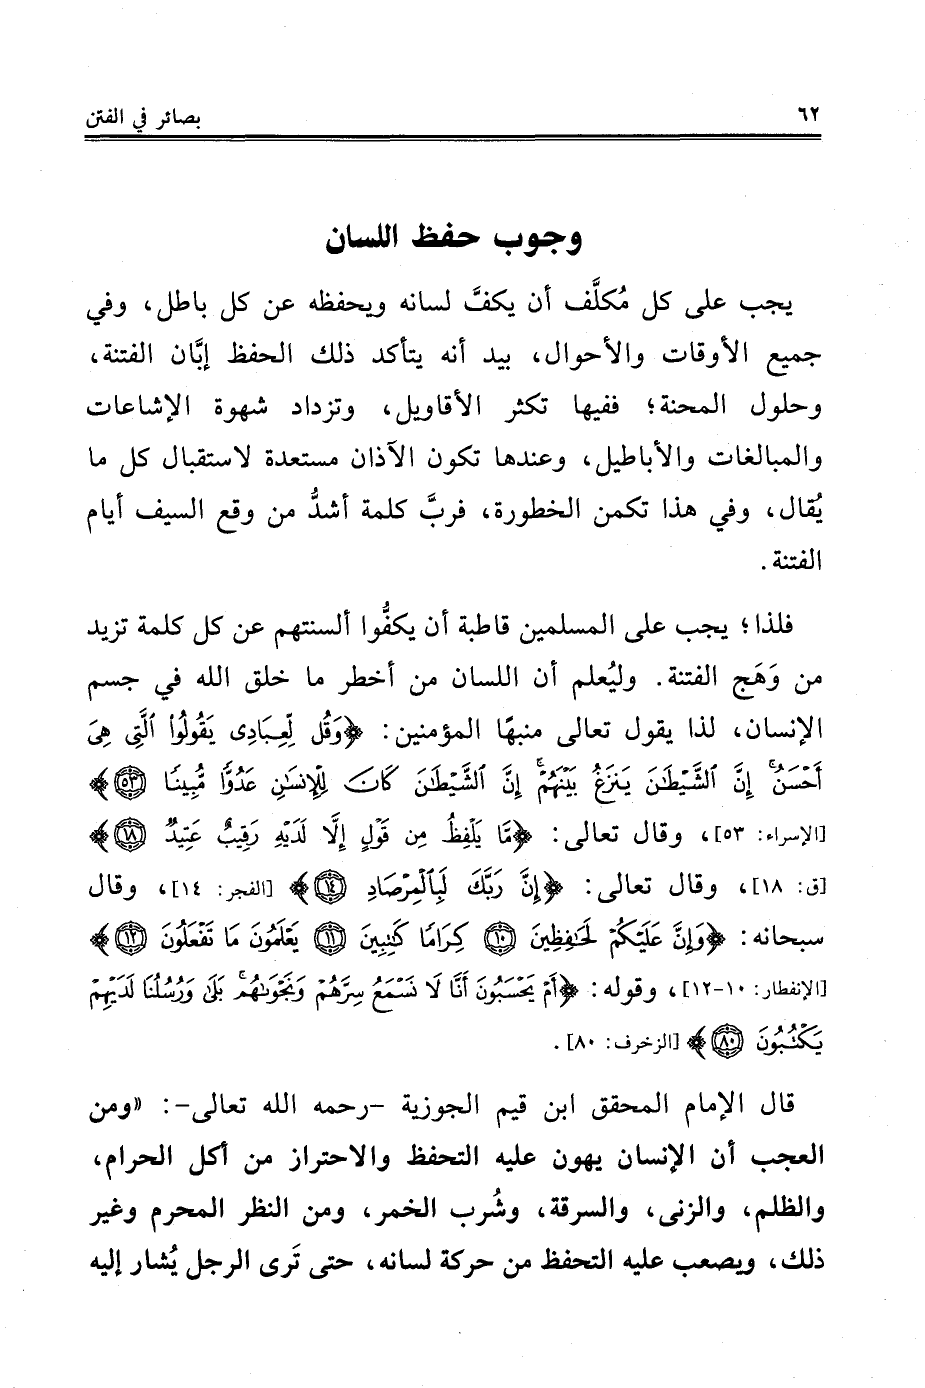 ٦٢
بصائر في الفتن
وجوب حفظ اللسان
يجب على كل مُكلَّف أن يكفَّ لسانه ويحفظه عن كل باطل، وفي
جميع الأوقات والأحوال، بيد أنه يتأكد ذلك الحفظ إبَّان الفتنة،
وحلول المحنة؛ ففيها تكثر الأقاويل، وتزداد شهوة الإشاعات
والمبالغات والأباطيل، وعندها تكون الآذان مستعدة لاستقبال كل ما
يُقال، وفي هذا تكمن الخطورة، فربَّ كلمة أشدُّ من وقع السيف أيام
الفتنة.
فلذا؛ يجب على المسلمين قاطبة أن يكفُّوا ألسنتهم عن كل كلمة تزيد
من وَهَج الفتنة. وليُعلم أن اللسان من أخطر ما خلق الله في جسم
الإنسان، لذا يقول تعالى منبهًا المؤمنين: ﴿وَقُل لِّعِبَادِى يَقُولُوا۟ ٱلَّتِى هِىَ
أَحْسَنُ ۚ إِنَّ ٱلشَّيْطَـٰنَ يَنزَغُ بَيْنَهُمْ ۚ إِنَّ ٱلشَّيْطَـٰنَ كَانَ لِلْإِنسَـٰنِ عَدُوًّا مُّبِينًا ٥٣﴾
[الإسراء: ٥٣]، وقال تعالى: ﴿مَّا يَلْفِظُ مِن قَوْلٍ إِلَّا لَدَيْهِ رَقِيبٌ عَتِيدٌ ١٨﴾
[ق: ١٨]، وقال تعالى: ﴿إِنَّ رَبَّكَ لَبِٱلْمِرْصَادِ ١٤﴾ [الفجر: ١٤]، وقال
سبحانه: ﴿وَإِنَّ عَلَيْكُمْ لَحَـٰفِظِينَ ١٠ كِرَامًا كَـٰتِبِينَ ١١ يَعْلَمُونَ مَا تَفْعَلُونَ ١٢﴾
[الإنفطار: ١٠-١٢]، وقوله: ﴿أَمْ يَحْسَبُونَ أَنَّا لَا نَسْمَعُ سِرَّهُمْ وَنَجْوَىٰهُم ۚ بَلَىٰ وَرُسُلُنَا لَدَيْهِمْ
يَكْتُبُونَ ٨٠﴾ [الزخرف: ٨٠].
قال الإمام المحقق ابن قيم الجوزية -رحمه الله تعالى-: «ومن
العجب أن الإنسان يهون عليه التحفظ والاحتراز من أكل الحرام،
والظلم، والزنى، والسرقة، وشُرب الخمر، ومن النظر المحرم وغير
ذلك، ويصعب عليه التحفظ من حركة لسانه، حتى تَرى الرجل يُشار إليه